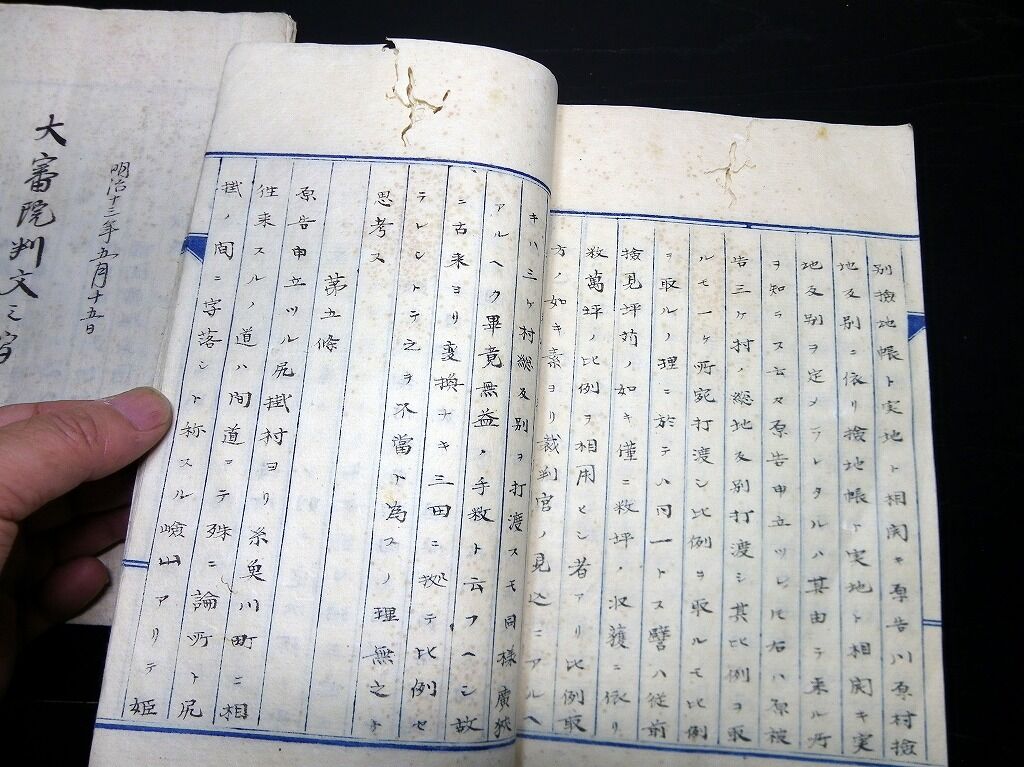 別撿地帳ト実地ト相関キ原告川原村撿
地反別ニ依リ撿地帳ト実地ト相関キ実
地反別ヲ定メラレタルハ其由テ来ル所
ヲ知ラス云々原告申立ツレ𪜈右ハ原被
告三ヶ村ノ総地反別打渡シ其比例ヲ取
ルモ一ヶ所宛打渡シ比例ヲ取ルモ比例
ヲ取ルノ理ニ於テハ同一トス譬ハ従前
撿見坪苅ノ如キ僅ニ数坪ノ収穫ニ依リ
数萬坪ノ比例ヲ相用ヒシ者アリ比例取
方ノ如キ素ヨリ裁判官ノ見込ニアルヘ
キハ三ヶ村総反別ヲ打渡スモ同様廣狹
アルヘク畢竟無益ノ手数ト云フヘシ故
ニ古来ヨリ変換ナキ三田ニ拠テ比例セ
ラレシトテ之ヲ不當ト為スノ理無之ト
思考ス
第五條
原告申立ツル尻掛村ヨリ糸魚川町ニ相
徃来スルノ道ハ間道ニテ殊ニ論所ト尻
掛ノ間ニ字落シト称スル嶮山アリテ姫
明治十三年五月十五日
大審院判文之写